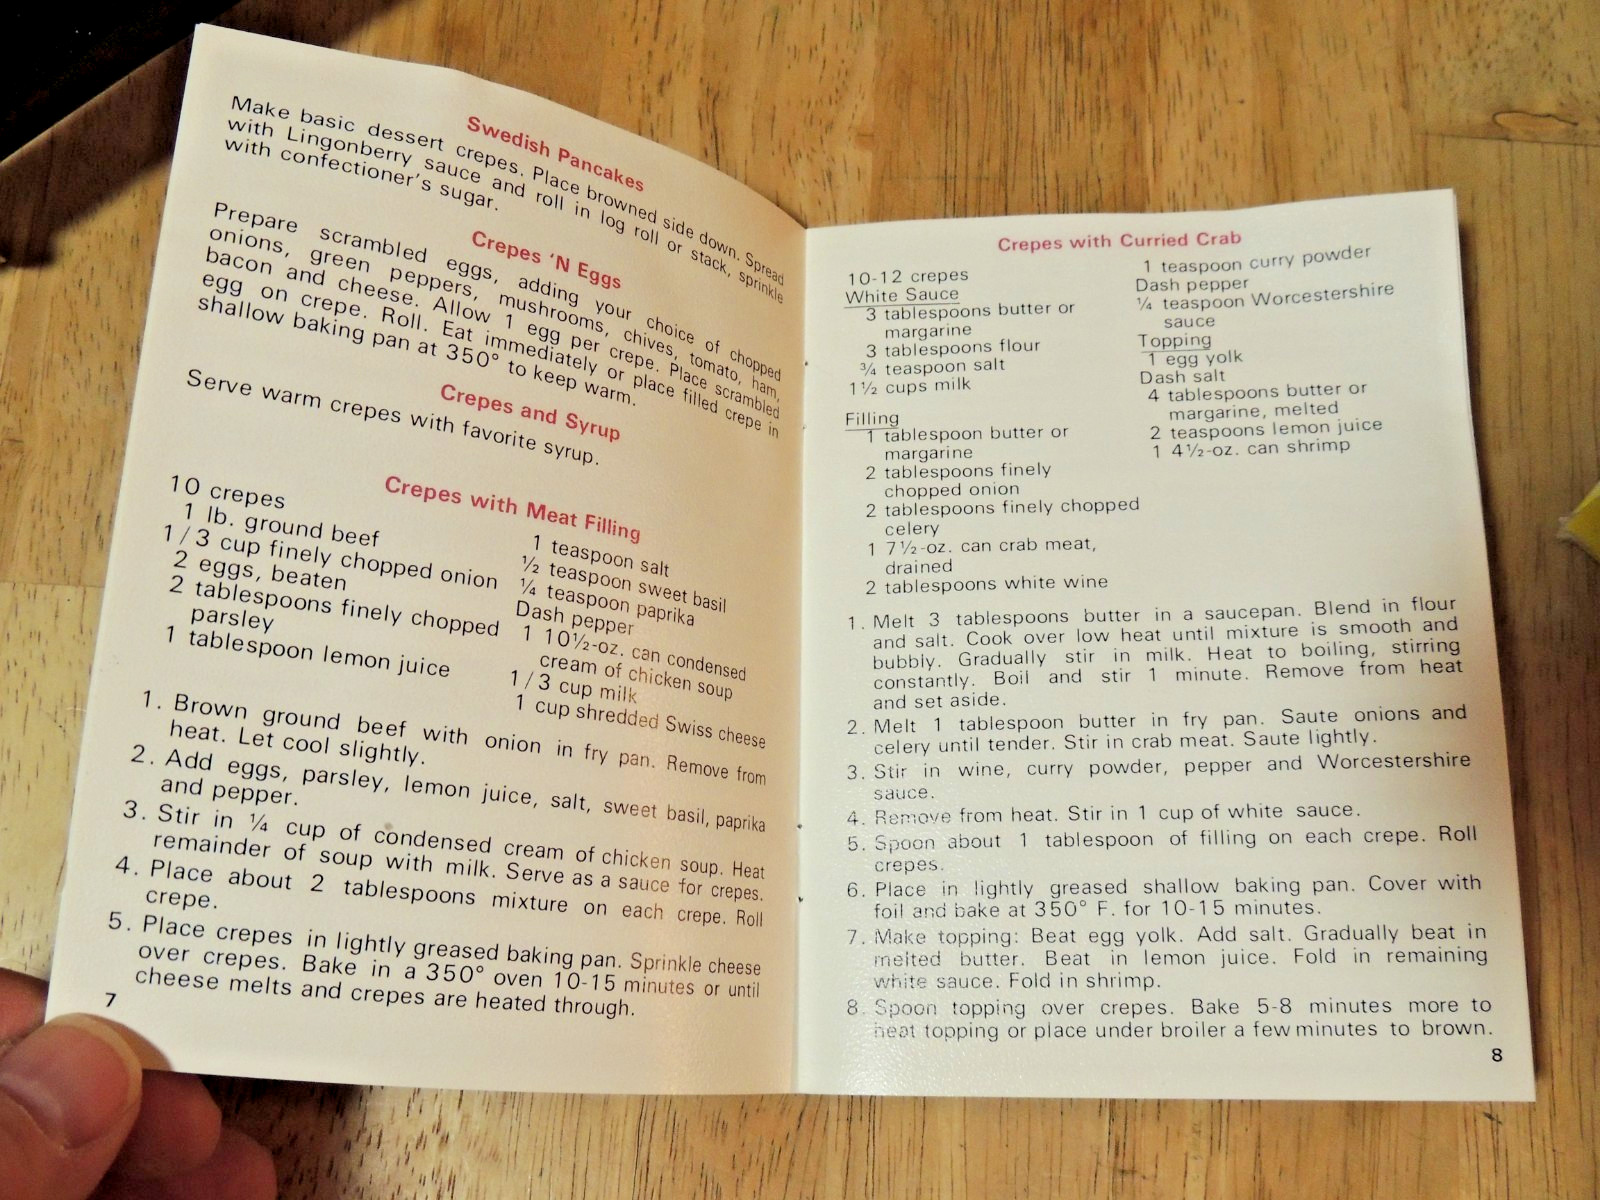 Swedish Pancakes
Make basic dessert crepes. Place browned side down. Spread
with Lingonberry sauce and roll in log roll or stack, sprinkle
with confectioner's sugar.
Crepes 'N Eggs
Prepare scrambled eggs, adding your choice of chopped
onions, green peppers, mushrooms, chives, tomato, ham,
bacon and cheese. Allow 1 egg per crepe. Place scrambled
egg on crepe. Roll. Eat immediately or place filled crepe in
shallow baking pan at 350° to keep warm.
Crepes and Syrup
Serve warm crepes with favorite syrup.
Crepes with Meat Filling
10 crepes
1 lb. ground beef
1/3 cup finely chopped onion
2 eggs, beaten
2 tablespoons finely chopped
parsley
1 tablespoon lemon juice
1 teaspoon salt
½ teaspoon sweet basil
¼ teaspoon paprika
Dash pepper
1 10½-oz. can condensed
cream of chicken soup
1/3 cup milk
1 cup shredded Swiss cheese
1. Brown ground beef with onion in fry pan. Remove from
heat. Let cool slightly.
2. Add eggs, parsley, lemon juice, salt, sweet basil, paprika
and pepper.
3. Stir in ¼ cup of condensed cream of chicken soup. Heat
remainder of soup with milk. Serve as a sauce for crepes.
4. Place about 2 tablespoons mixture on each crepe. Roll
crepe.
5. Place crepes in lightly greased baking pan. Sprinkle cheese
over crepes. Bake in a 350° oven 10-15 minutes or until
cheese melts and crepes are heated through.
7
Crepes with Curried Crab
10-12 crepes
White Sauce
3 tablespoons butter or
margarine
3 tablespoons flour
¾ teaspoon salt
1½ cups milk
Filling
1 tablespoon butter or
margarine
2 tablespoons finely
chopped onion
2 tablespoons finely chopped
celery
1 7½-oz. can crab meat,
drained
2 tablespoons white wine
1 teaspoon curry powder
Dash pepper
¼ teaspoon Worcestershire
sauce
Topping
1 egg yolk
Dash salt
4 tablespoons butter or
margarine, melted
2 teaspoons lemon juice
1 4½-oz. can shrimp
1. Melt 3 tablespoons butter in a saucepan. Blend in flour
and salt. Cook over low heat until mixture is smooth and
bubbly. Gradually stir in milk. Heat to boiling, stirring
constantly. Boil and stir 1 minute. Remove from heat
and set aside.
2. Melt 1 tablespoon butter in fry pan. Saute onions and
celery until tender. Stir in crab meat. Saute lightly.
3. Stir in wine, curry powder, pepper and Worcestershire
sauce.
4. Remove from heat. Stir in 1 cup of white sauce.
5. Spoon about 1 tablespoon of filling on each crepe. Roll
crepes.
6. Place in lightly greased shallow baking pan. Cover with
foil and bake at 350° F. for 10-15 minutes.
7. Make topping: Beat egg yolk. Add salt. Gradually beat in
melted butter. Beat in lemon juice. Fold in remaining
white sauce. Fold in shrimp.
8. Spoon topping over crepes. Bake 5-8 minutes more to
heat topping or place under broiler a few minutes to brown.
8